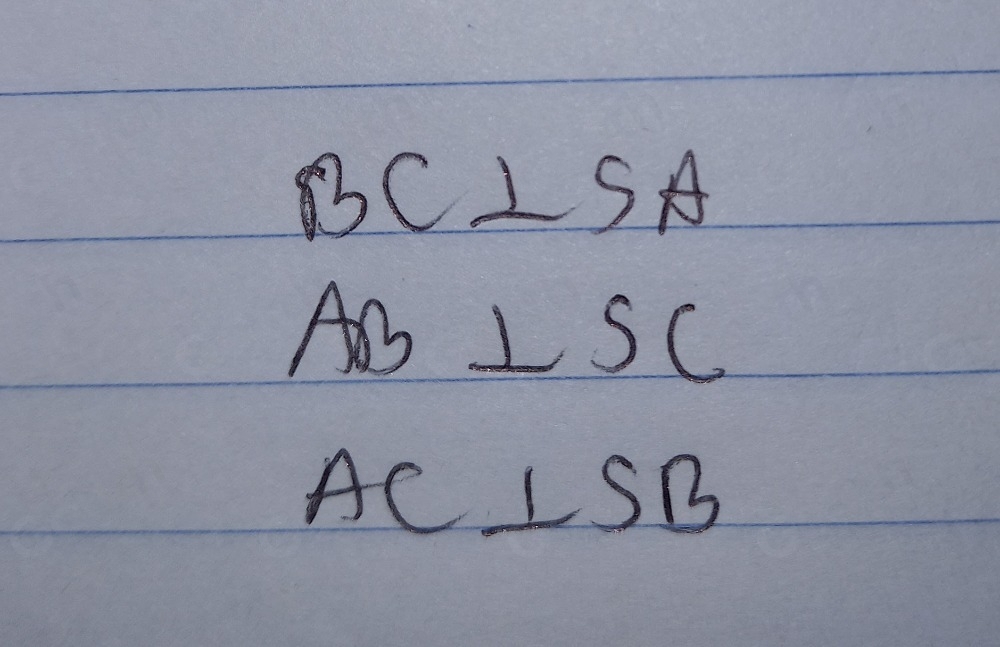 BC ⊥ SA
AB ⊥ SC
AC ⊥ SB